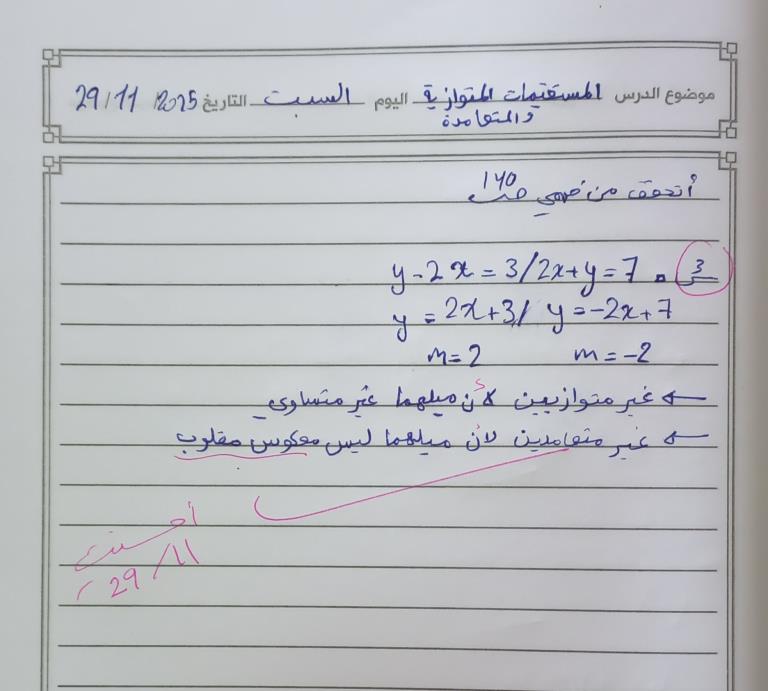 موضوع الدرس المستقيمات المتوازية والمتعامدة اليوم السبت التاريخ 29/11/2025
أتحقق من فهمي صـ 140
س3 y-2x=3/2x+y=7
y=2x+3/ y=-2x+7
m=2 m=-2
← غير متوازيين لأن ميلهما غير متساوي
← غير متعامدين لأن ميلهما ليس معكوس مقلوب
أحسنت
29/11